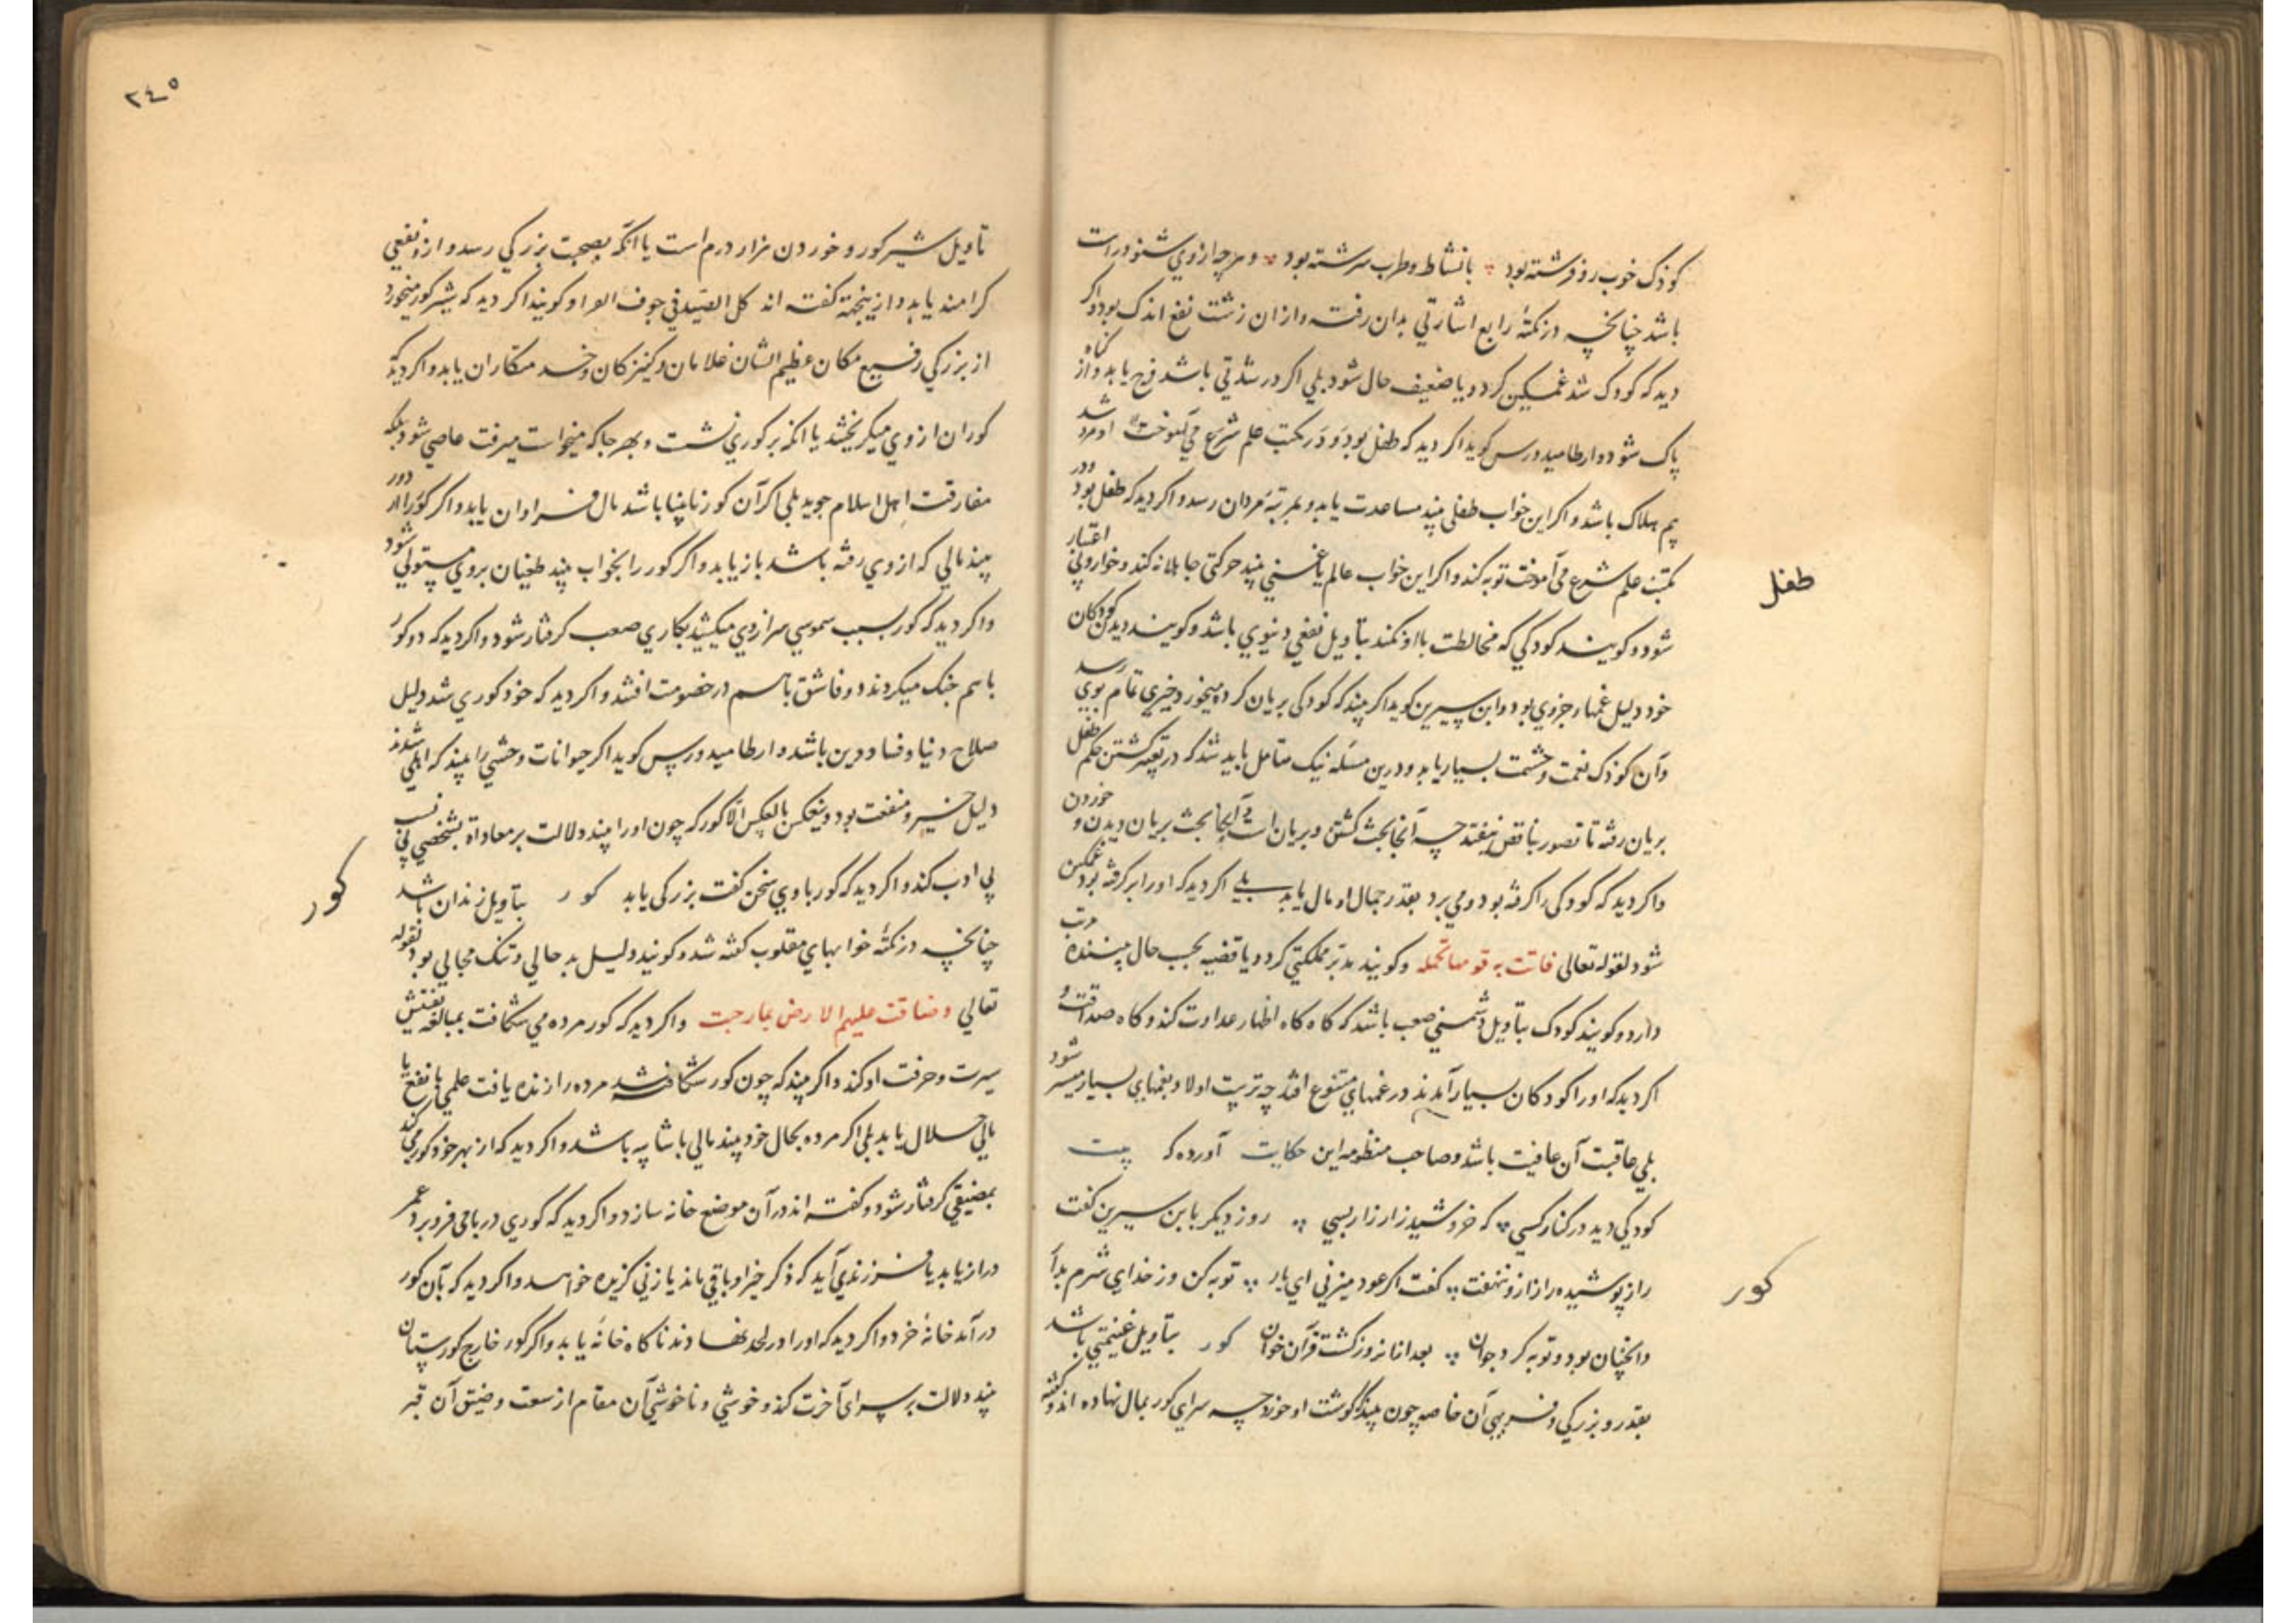 کودک خوب رو فرشته بود با نشاط و طرب سرشته بود و هرچه ازوي شنود راست
باشد چنانچه در نکتۀ رابع اشارتي بدان رفت و ازان زشت نفع اندک بود و اکر
دید که کودک شد غمکین کردد و یا ضعیف حال شود بلي اکر در شدتي باشد فرح یابد و از کناه
پاک شود و ارطامیدورس کوید اکر دید که طفل بود و در مکتب علم شرع مي آموخت او مرد شد
بیم هلاک باشد و اکر این خواب طفلی بیند مساعدت یابد و بمرتبۀ مردان رسد و اکر دید که طفل بود و در
مکتب علم شرع مي آموخت توبه کند و اکر این خواب عالم یا غني بیند حرکتی جاهلانه کند و خوار و بي اعتبار
شود و کویند کودکي که مخالطت با او نکند بتاویل نفعي دنیوي باشد و کویند دیدن کودکان
خود دلیل غمهاء جزوي بود و ابن سیرین کوید اکر بیند که کودکی بریان کرده میخورد خیري تمام بوي رسد
وآن کودک نعمت و حشمت بسیار یابد و درین مسئله نیک متامل باید شد که در تعبیر کشتن حکم طفل
بریان رفته تا تصور تناقض نیفتد چه آنجا بحث کشتن و بریان است و اینجا بحث بریان دیدن و خوردن
واکر دید که کودکی را کرفته بود و مي برد بقدر جمال او مال یابد بلي اکر دید که اورا بر کرفته بود غمکین
شود لقوله تعالی فاتت به قومها تحمله و کویند مدبر مملکتي کردد یا قضیه بحسب حال بیننده مرتب
دارد و کویند کودک بتاویل دشمني صعب باشد که کاه کاه اظهار عداوت کند و کاه صداقت و
اکر دید که اورا کودکان بسیار آمدند در غمهاي متنوع افتد چه تربیت اولاد بغمهاي بسیار میسر شود
بلي عاقبت آن عافیت باشد و صاحب منظومه این حکایت آورده که بیت
کودکي دید در کنار کسي که خروشید زار زار بسي روز دیکر با ابن سیرین کفت
راز پوشیده را ازو ننهفت کفت اکر عود میزني اي یار توبه کن وز خداي شرم بدار
وانچنان بود و توبه کرد جوان بعد ازان روز کشت قرآن خوان کور بتاویل غنیمتي باشد
بقدر و بزرکي و فربهي آن خاصه چون بیند که کوشت او خورد چه سراي کور بمال نهاده اند و کفته
طفل
کور
۲٤٥
تاویل شیر کور و خوردن هزار درم است یا انکه بصحبت بزرکي رسد و ازو نفعي
کرامند یابد و ازینجهة کفته اند کل الصید في جوف الفرا و کویند اکر دید که شیر کور میخورد
از بزرکي رفیع مکان عظیم الشان غلامان و کنیزکان و خدمتکاران یابد و اکر دید که
کوران ازوي میکریختند یا انکه بر کوري نشست و بهر جا که میخواست میرفت عاصي شود بلکه
مفارقت اهل اسلام جوید بلي اکر آن کور نابینا باشد مال فراوان یابد و اکر کور را از دور
بیند مالي که ازوي رفته باشد باز یابد و اکر کور را بخواب بیند طغیان بروي مستولي شود
واکر دید که کور بسبب سموسي سر ازوي میکشید بکاري صعب کرفتار شود و اکر دید که دو کور
باهم جنک میکردند دو فاسق باهم در خصومت افتند و اکر دید که خود کوري شد دلیل
صلاح دنیا و فساد دین باشد و ارطامیدورس کوید اکر حیوانات وحشي را بیند که اهلي شدند
دلیل خیر و منفعت بود و ینعکس بالعکس الا کور که چون اورا بیند دلالت بر معاداة شخصي بي نسب
بي ادب کند و اکر دید که کور باوي سخن کفت بزرکی یابد کور بتاویل زندان باشد
چنانچه در نکتۀ خوابهاي مقلوب کفته شد و کویند دلیل بد حالي و تنک مجالي بود لقوله
تعالي وضاقت علیهم الارض بما رحبت واکر دید که کور مرده مي شکافت بمبالغه تفتیش
سیرت و حرفت او کند و اکر بیند که چون کور شکافته شد مرده را زنده یافت علمي با نفع یا
مالي حلال یابد بلي اکر مرده بحال خود بیند مالي باشائبه باشد و اکر دید که از بهر خود کور مي کند
بمضیقي کرفتار شود و کفته اند در آن موضع خانه سازد و اکر دید که کوري در بامي فرو برد عمر
دراز یابد یا فرزندي آید که ذکر خیر او باقي ماند یا زني کزیده خواهد و اکر دید که بآن کور
درآمد خانۀ خرد و اکر دید که اورا در لحد نهادند ناکاه خانه یابد و اکر کور خارج کورستان
بیند دلالت بر سراي آخرت کند و خوشي و ناخوشي آن مقام از سعت و ضیق آن قبر
کور